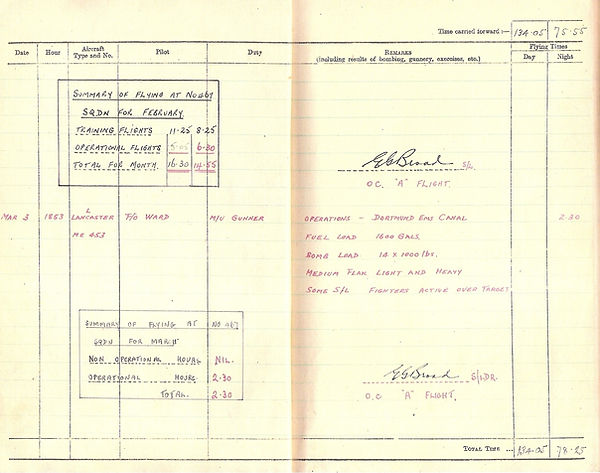 Time carried forward :— 134.05 75.55
Date Hour Aircraft Type and No. Pilot Duty Remarks (including results of bombing, gunnery, exercises, etc.) Flying Times Day Night
SUMMARY OF FLYING AT No 467
SQDN FOR FEBRUARY
TRAINING FLIGHTS 11.25 8.25
OPERATIONAL FLIGHTS 5.05 6.30
TOTAL FOR MONTH. 16.30 14.55
EG Broad S/L.
O.C. "A" FLIGHT.
MAR 3 1853 L LANCASTER F/O WARD M/U GUNNER OPERATIONS - DORTMUND EMS CANAL 2.30
ME 453 FUEL LOAD 1600 GALS.
BOMB LOAD 14 x 1000 lbs.
MEDIUM FLAK LIGHT AND HEAVY
SOME S/L FIGHTERS ACTIVE OVER TARGET
SUMMARY OF FLYING AT NO 467
SQDN FOR MARCH
NON OPERATIONAL HOURS NIL.
OPERATIONAL HOURS. 2.30
TOTAL. 2.30
EG Broad S/LDR.
O.C "A" FLIGHT.
Total Time ... 134.05 78.25